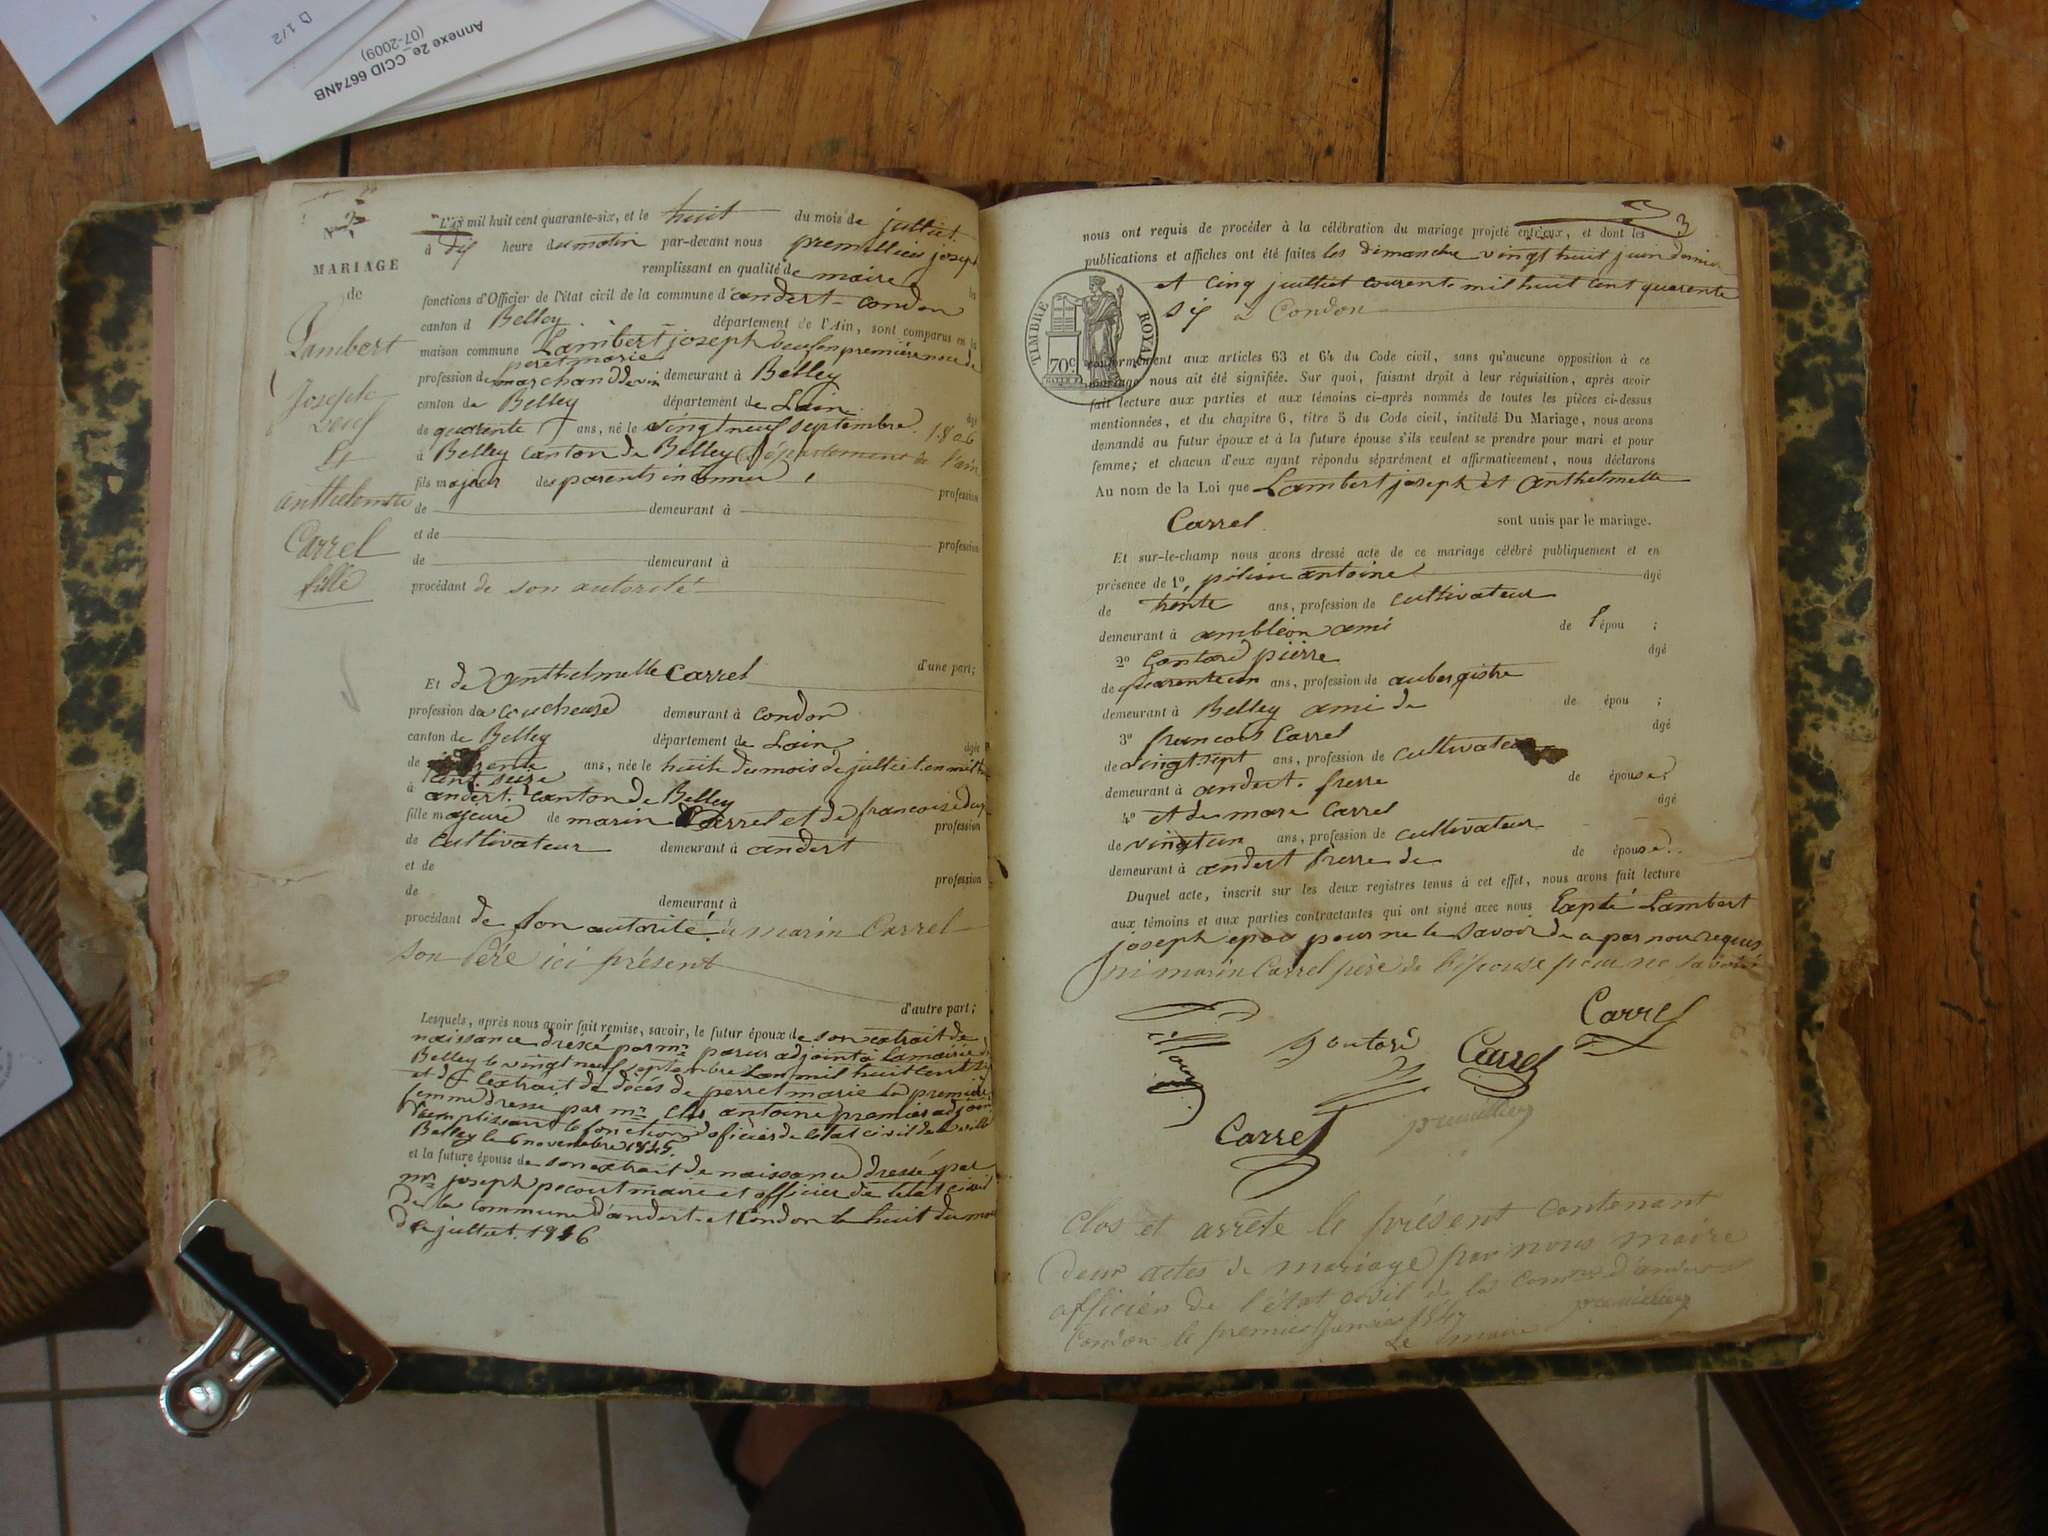 Annexe 2e CCID 6674NB
(07-2009)
D 1/2
N 2
MARIAGE
de
Lambert
Joseph
veuf
Et
anthelmette
Carrel
fille
L'an mil huit cent quarante-six, et le huit du mois de julliet
à dix heure du matin par-devant nous premillieu joseph
remplissant en qualité de maire les
fonctions d'Officier de l'état civil de la commune d'andert-condon
canton d Belley département de l'Ain, sont comparus en la
maison commune Lambert joseph veuf en première noce de
peret marie
profession de marchand de vin demeurant à Belley
canton de Belley département de Lain âgé
de quarente ans, né le vingt neuf septembre 1806
à Belley canton de Belley département de l'ain
fils majeur des parents inconnu profession
de demeurant à
et de profession
de demeurant à
procédant de son autorité
d'une part;
Et de Anthelmelle Carrel
profession de acoucheuse demeurant à condon
canton de Belley département de Lain âgée
de trente ans, née le huite du mois de julliet en mil huit
cent seize
à andert canton de Belley
fille majeure de marin Carrel et de francoise
profession
de cultivateur demeurant à andert
et de profession
de demeurant à
procédant de son autorité, de marin Carrel
son Père ici présent
d'autre part;
Lesquels, après nous avoir fait remise, savoir, le futur époux de son extrait de
naissance dressé par mr parur adjoint à la mairie de
Belley le vingt neuf septembre Lan mil huit cent six
et de l'extrait de décès de perret marie sa première
femme dressé par mr antoine premier adjoint
remplissant le fonctions d'oficier de létat civil de la ville
Belley le 6 novembre 1845.
et la future épouse de son extrait de naissance dressé par
mr joseph pecout maire et officier de létat civil
de la commune d'andert et Condon le huit du mois
de julliet 1816
3
nous ont requis de procéder à la célébration du mariage projeté entr'eux, et dont les
publications et affiches ont été faites les dimanche vingt huit juin dernier
et cinq julliet courent mil huit cent quarente
six à Condon
TIMBRE ROYAL
70c
conformément aux articles 63 et 64 du Code civil, sans qu'aucune opposition à ce
mariage nous ait été signifiée. Sur quoi, faisant droit à leur réquisition, après avoir
fait lecture aux parties et aux témoins ci-après nommés de toutes les pièces ci-dessus
mentionnées, et du chapitre 6, titre 5 du Code civil, intitulé Du Mariage, nous avons
demandé au futur époux et à la future épouse s'ils veulent se prendre pour mari et pour
femme; et chacun d'eux ayant répondu séparément et affirmativement, nous déclarons
Au nom de la Loi que Lambert joseph et Anthelmette
Carrel sont unis par le mariage.
Et sur-le-champ nous avons dressé acte de ce mariage célébré publiquement et en
présence de 1º antoine âgé
de trente ans, profession de cultivateur
demeurant à ambléon ami de l'épou ;
2º Gontard pierre âgé
de quarente un ans, profession de aubergistre
demeurant à Belley ami de de épou ;
3º francois Carrel âgé
de vingt sept ans, profession de cultivateur
demeurant à andert. frerre de épouse;
4º et de marc Carrel âgé
de vingt un ans, profession de cultivateur
demeurant à andert frerre de de épouse.
Duquel acte, inscrit sur les deux registres tenus à cet effet, nous avons fait lecture
aux témoins et aux parties contractantes qui ont signé avec nous Exepté Lambert
joseph epoo pour ne le savoir de a par nou requis
ni marin Carrel père de l'épouse pour ne savoir
Gontard
Carrel
Carrel
Carrel
premillieu
Clos et arrête le présent contenant
deux actes de mariage par nous maire
officier de l'état civil de la comne d'andert
Condon le premier Janvier 1847
Le maire
premillieu